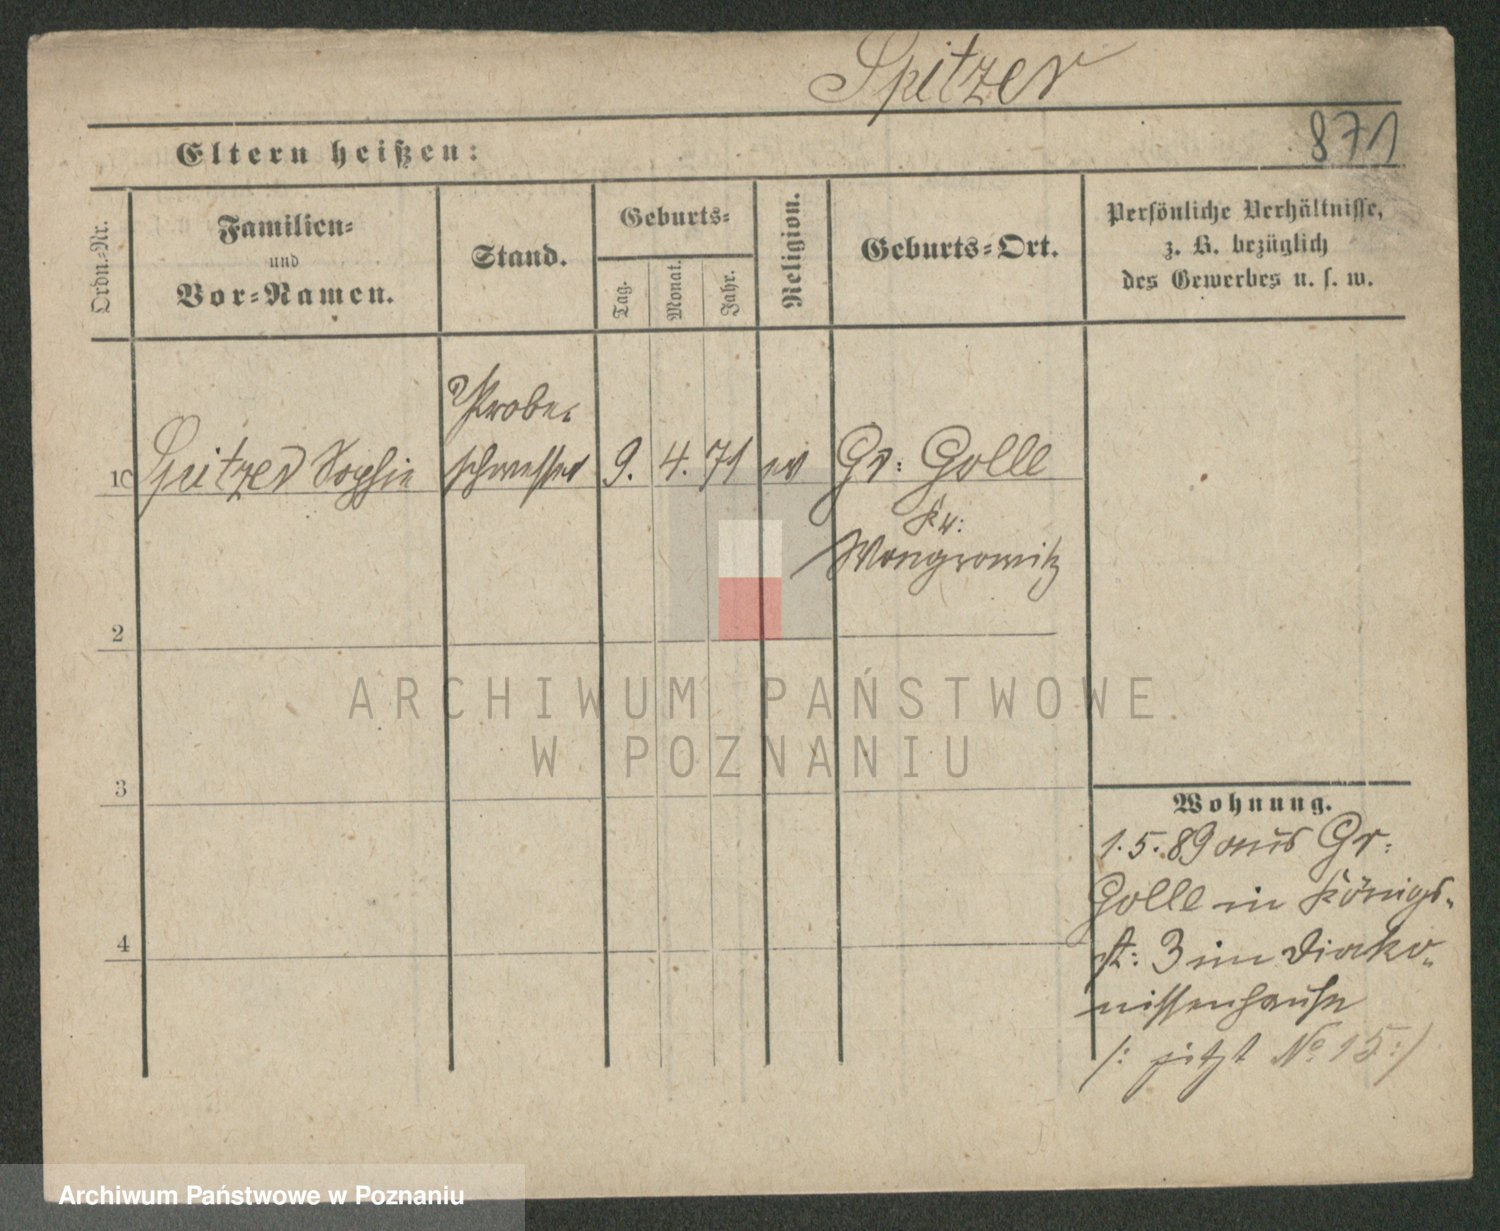 Spitzer
871
Eltern heißen:
Ordn.-Nr.
Familien-
und
Vor-Namen.
Stand.
Geburts-
Tag.
Monat.
Jahr.
Religion.
Geburts-Ort.
Persönliche Verhältnisse,
z. B. bezüglich
des Gewerbes u. s. w.
Probe-
1 Spitzer Sophie schwester 9. 4. 71 ev Gr: Golle
Kr:
Wongrowitz
2
ARCHIWUM PAŃSTWOWE
W POZNANIU
3
Wohnung.
1.5.89 aus Gr:
Golle in Königs-
st: 3 im Diako-
nissenhause
/: jetzt No 15 :/
4
Archiwum Państwowe w Poznaniu